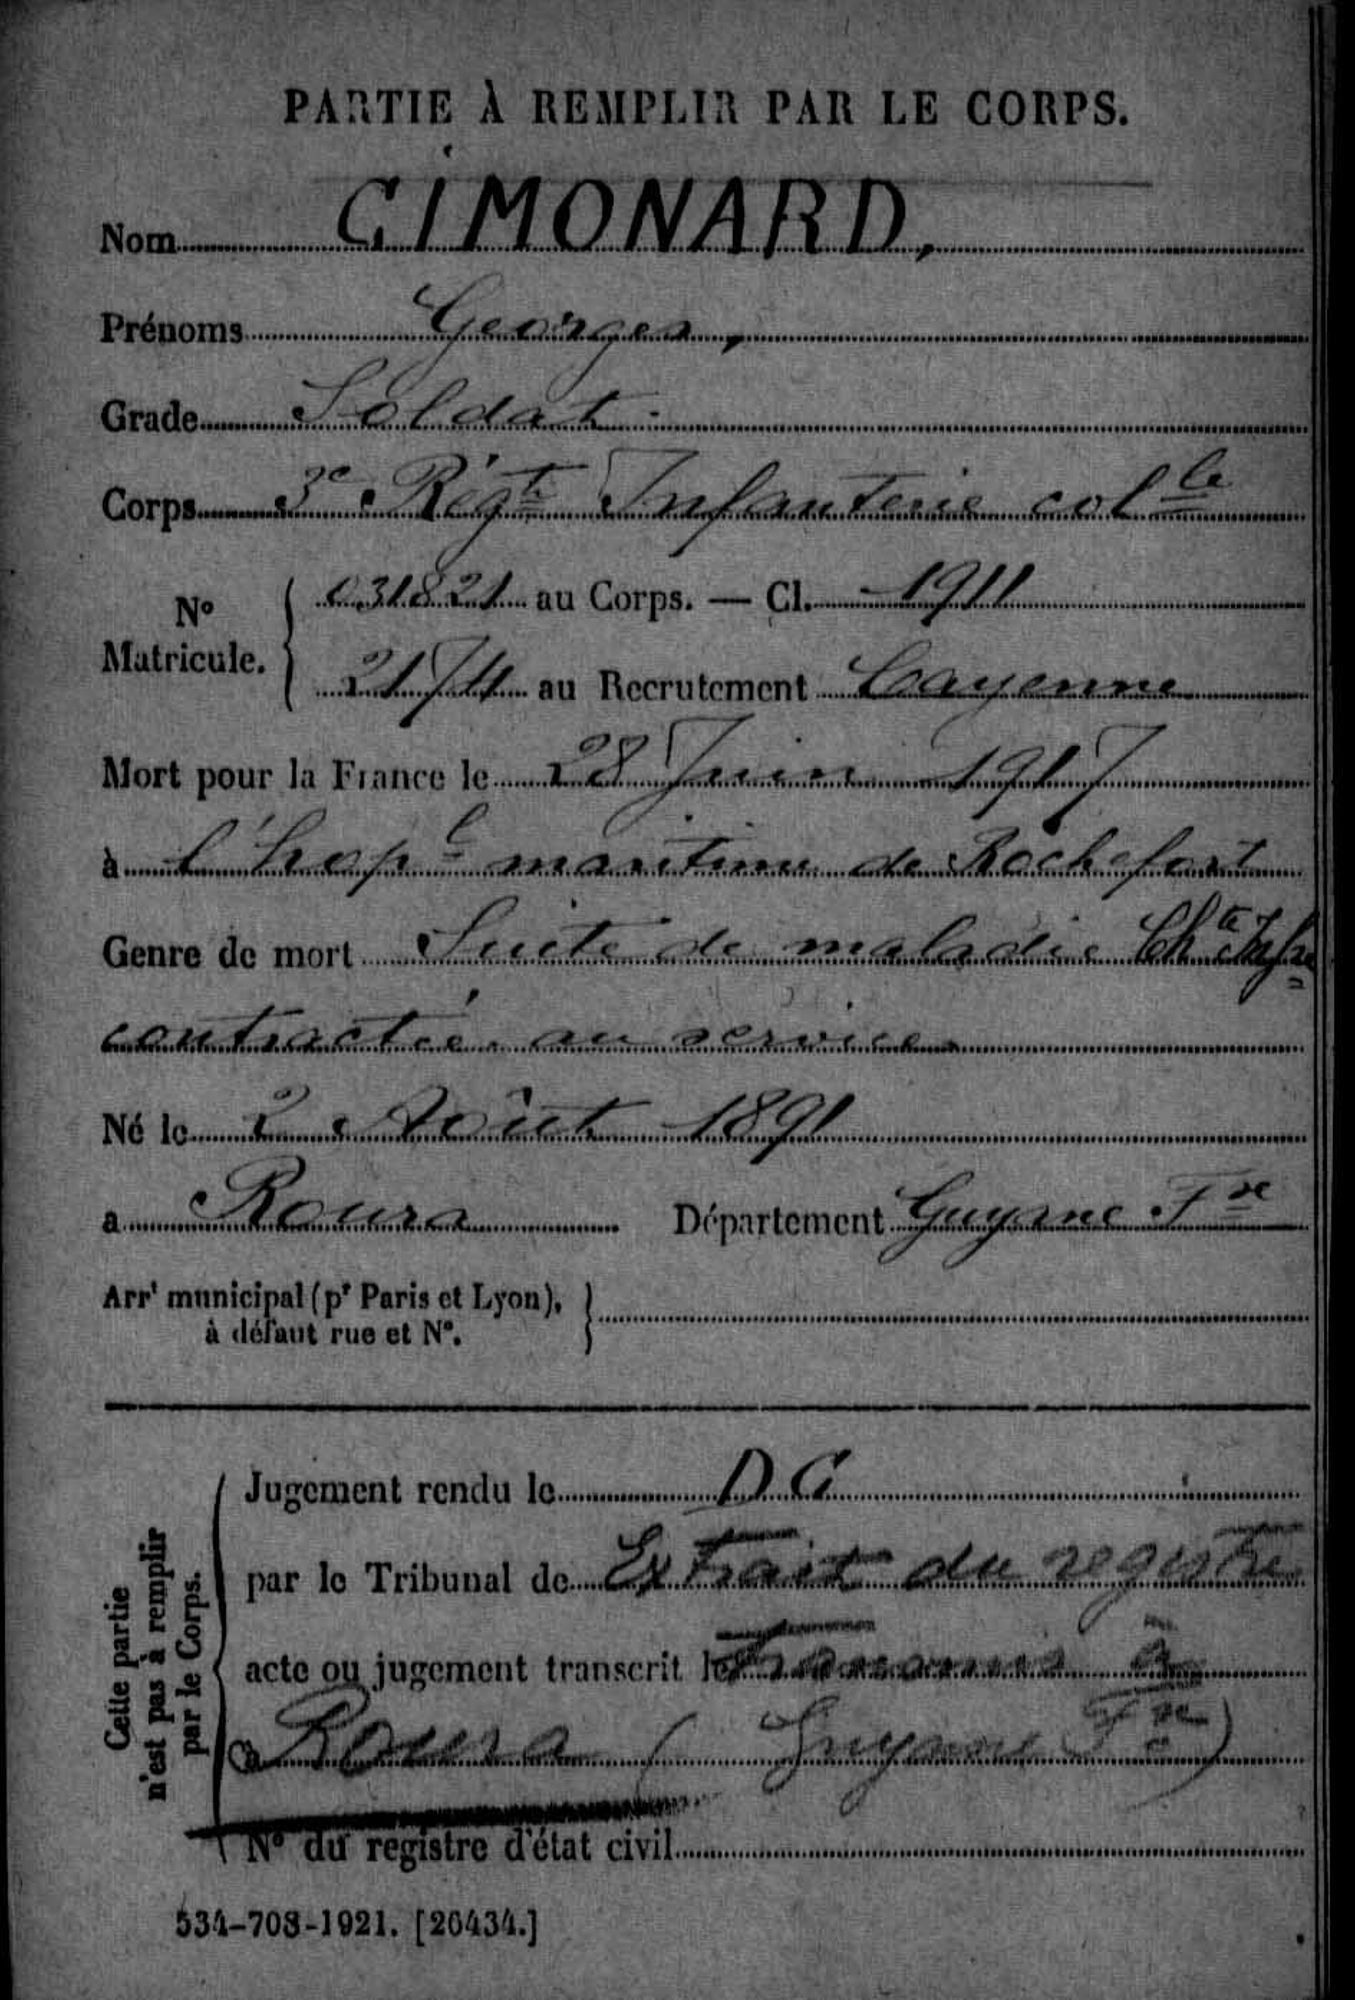 PARTIE À REMPLIR PAR LE CORPS.
Nom GIMONARD,
Prénoms Georges,
Grade Soldat.
Corps 3e Régt Infanterie colle
No Matricule. 031821 au Corps. — Cl. 1911
2174 au Recrutement Cayenne
Mort pour la France le 28 Juin 1917
à l'hopl maritime de Rochefort
Genre de mort Suite de maladie
contractée au service
Né le 2 Août 1891
a Roura Département Guyane Fse
Arrt municipal (pr Paris et Lyon),
à défaut rue et No.
Cette partie
n'est pas à remplir
par le Corps.
Jugement rendu le D G
par le Tribunal de Extrait du registre
acte ou jugement transcrit le Transmis à
à Roura (Guyane Fse)
No du registre d'état civil
534-708-1921. [26434.]